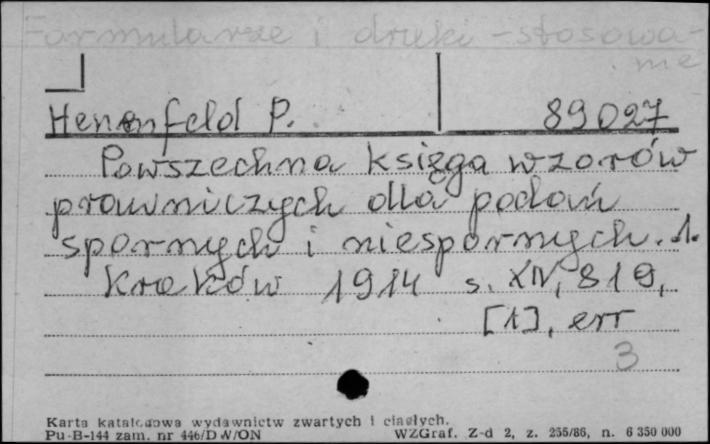 Formularze i druki - stosowa-
ne
Henenfeld P. 89027
Powszechna księga wzorów
prawniczych dla podań
spornych i niespornych. 1.
Kraków 1914 s. XIV, 819,
[1], err
3
Karta katalogowa wydawnictw zwartych i ciągłych.
Pu-B-144 zam. nr 446/DW/ON WZGraf. Z-d 2, z. 255/86, n. 6 350 000